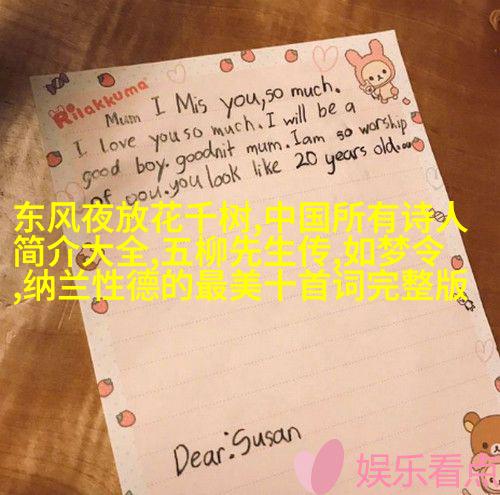 Rilakkuma
Mum I Mis you,so much.
I love you so much. I will be a
good boy. goodnit mum. Iam so worship
of you. you look like 20 years old.
东风夜放花千树,中国所有诗人
简介大全,五柳先生传,如梦令
,纳兰性德的最美十首词完整版
Dear:Susan
娱乐看点